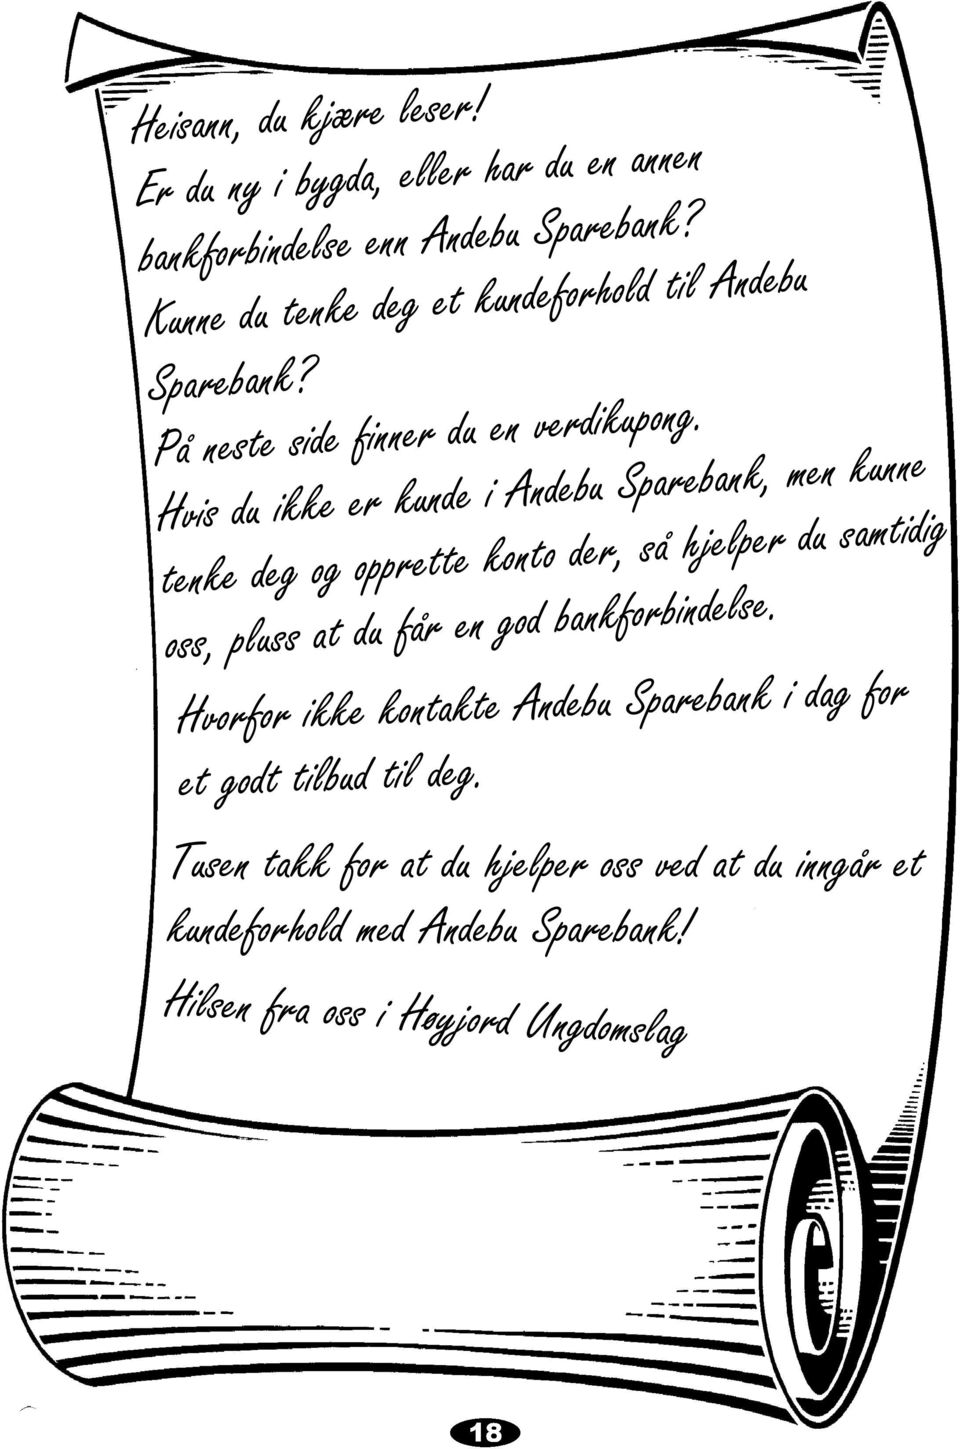 Heisann, du kjære leser!
Er du ny i bygda, eller har du en annen
bankforbindelse enn Andebu Sparebank?
Kunne du tenke deg et kundeforhold til Andebu
Sparebank?
På neste side finner du en verdikupong.
Hvis du ikke er kunde i Andebu Sparebank, men kunne
tenke deg og opprette konto der, så hjelper du samtidig
oss, pluss at du får en god bankforbindelse.
Hvorfor ikke kontakte Andebu Sparebank i dag for
et godt tilbud til deg.
Tusen takk for at du hjelper oss ved at du inngår et
kundeforhold med Andebu Sparebank!
Hilsen fra oss i Høyjord Ungdomslag
18